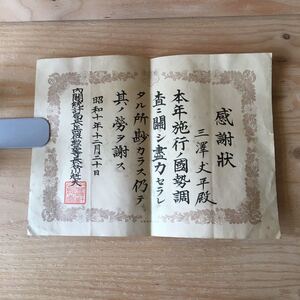 感謝狀
三澤丈平殿
本年施行ノ國勢調
査ニ關シ盡力セラレ
タル所尠カラス仍テ
其ノ勞ヲ謝ス
昭和十年十二月二十日